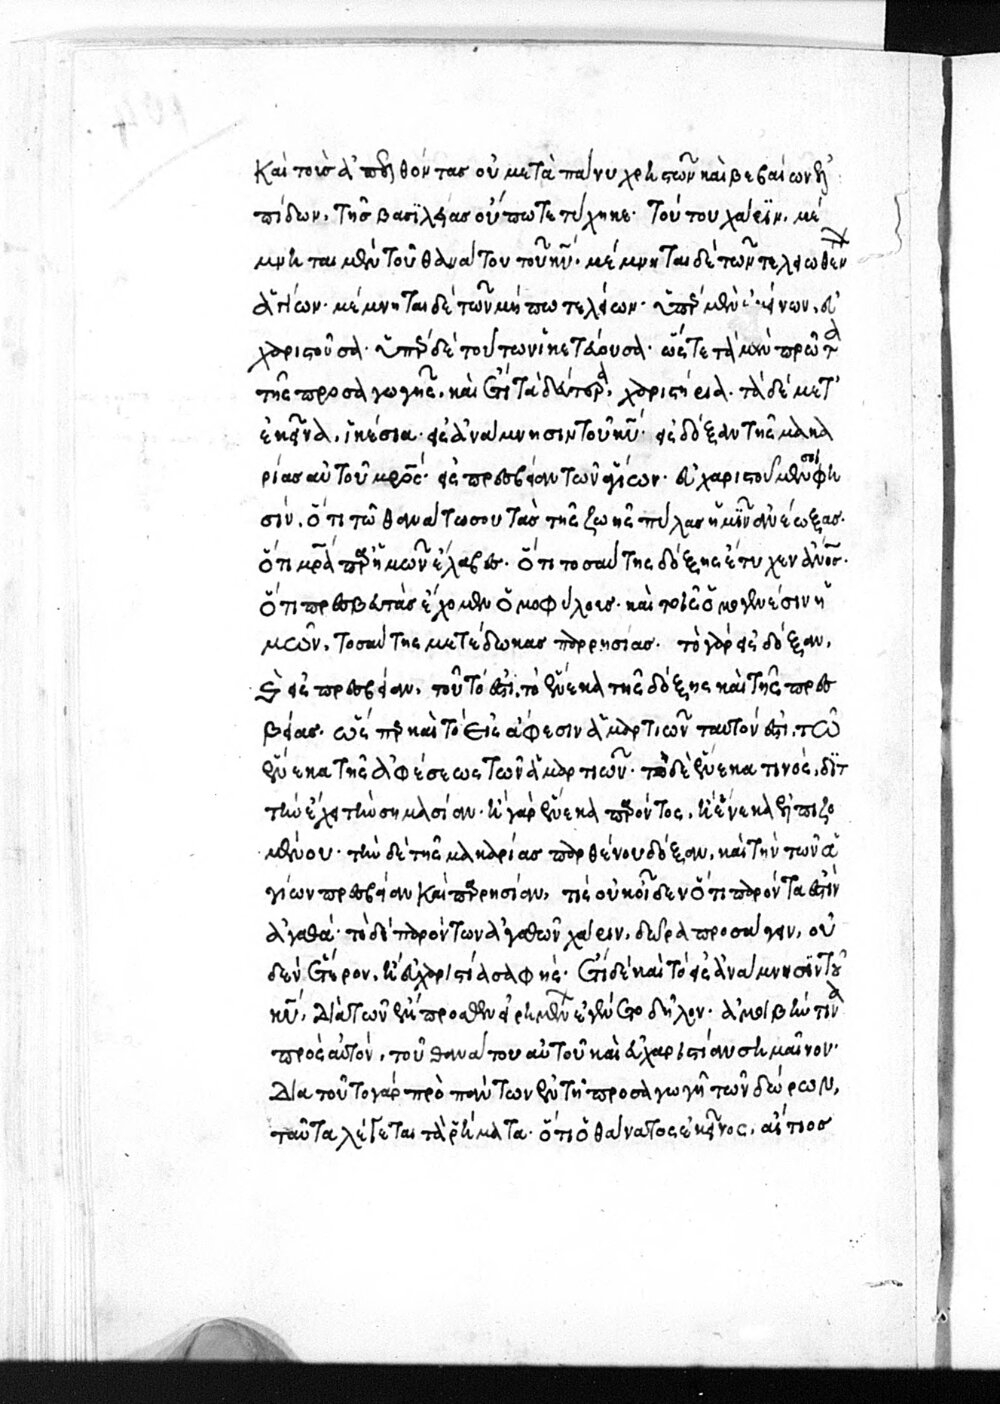 καὶ τοὺς ἀπελθόντας οὐ μετὰ πάνυ χρηστῶν καὶ βεβαίων ἐλ
πίδων, τῆς βασιλείας οὔπω τετύχηκε. τούτου χάριν, μέ
μνηται μὲν τοῦ θανάτου τοῦ κυ. μέμνηται δὲ τῶν τελειωθέντων
ἁγίων. μέμνηται δὲ τῶν μήπω τελείων. ὑπὲρ μὲν ἐκείνων, εὐ
χαριστοῦσα. ὑπὲρ δὲ τούτων ἱκετεύουσα. ὥστε τὰ μὲν πρῶτα
τῆς προσαγωγῆς, καὶ ἔτι τὰ δεύτερα, χαριστήρια. τὰ δὲ μετ'
ἐκεῖνα, ἱκέσια. εἰς ἀνάμνησιν τοῦ κυ. εἰς δόξαν τῆς μακα
ρίας αὐτοῦ μρς. εἰς πρεσβείαν τῶν ἁγίων. εὐχαριστοῦμέν σοι φη
σίν, ὅτι τῷ θανάτῳ σου τὰς τῆς ζωῆς πύλας ἡμῖν ἀνέῳξας.
ὅτι μρα παρ' ἡμῶν ἔλαβες. ὅτι τοσαύτης δόξης ἔτυχεν ανος.
ὅτι πρεσβευτὰς ἔχομεν ὁμοφύλους. καὶ τοῖς ὁμογενέσιν ἡ
μῶν, τοσαύτης μετέδωκας παρρησίας. τὸ γὰρ εἰς δόξαν,
καὶ εἰς πρεσβείαν, τοῦτό ἐστι, τὸ ἕνεκα τῆς δόξης καὶ τῆς πρεσ
βείας. ὥσπερ καὶ τὸ εἰς ἄφεσιν ἁμαρτιῶν ταυτόν ἐστι, τῷ
ἕνεκα τῆς ἀφέσεως τῶν ἁμαρτιῶν. τὸ δὲ ἕνεκα τινός, διτ
τὴν ἔχει τὴν σημασίαν. ἢ γὰρ ἕνεκα παρόντος, ἢ ἕνεκα ἐλπιζο
μένου. τὴν δὲ τῆς μακαρίας παρθένου δόξαν, καὶ τὴν τῶν ἁ
γίων πρεσβείαν καὶ παρρησίαν, τίς οὐκ οἶδεν ὅτι παρόντα ἐστὶν
ἀγαθά. τὸ δὲ παρόντων ἀγαθῶν χάριν, δῶρα προσάγειν, οὐ
δὲν ἕτερον, ἢ εὐχαριστία σαφής. ἔτι δὲ καὶ τὸ εἰς ἀνάμνησιν τοῦ
κυ, διὰ τῶν ἔμπροσθεν εἰρημένων ἐγένετο δῆλον. ἀμοιβήν τινα
πρὸς αὐτόν, τοῦ θανάτου αὐτοῦ καὶ εὐχαριστίαν σημαῖνον.
Διὰ τοῦτο γὰρ πρὸ πάντων ἐν τῇ προσαγωγῇ τῶν δώρων,
ταῦτα λέγεται τὰ ῥήματα. ὅτι ὁ θάνατος ἐκεῖνος, αἴτιος